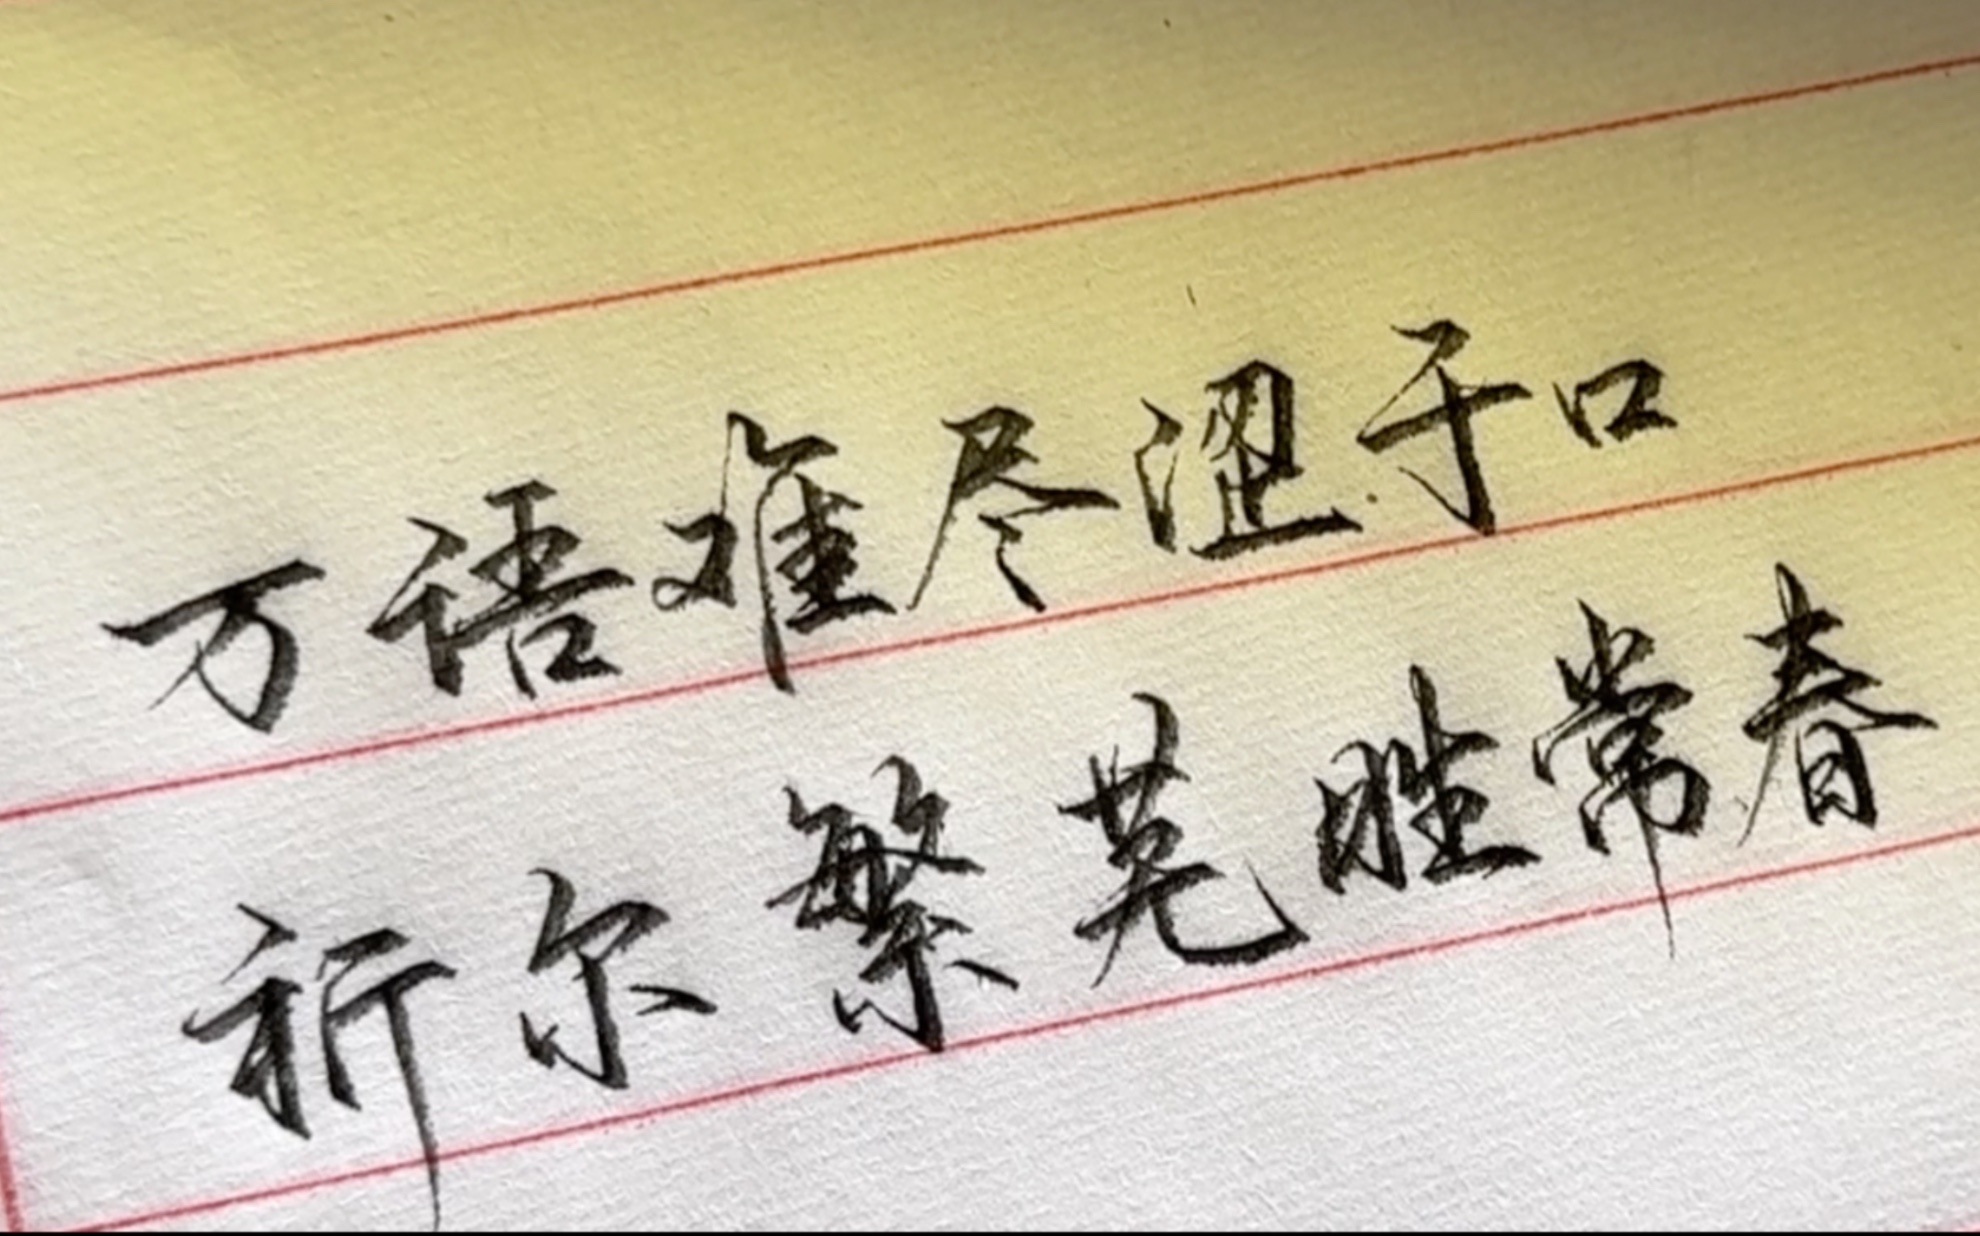 万语难尽涩于口
祈尔繁芜胜常春